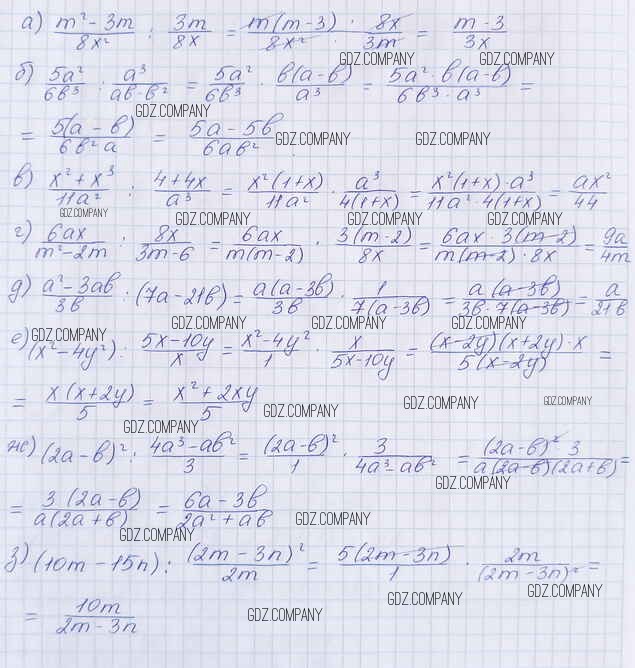 а) (m² - 3m)/(8x²) : 3m/8x = (m(m-3))/(8x²) · 8x/3m = (m-3)/3x
GDZ.COMPANY GDZ.COMPANY
б) 5a²/6b³ : a³/(ab-b²) = 5a²/6b³ · b(a-b)/a³ = (5a²·b(a-b))/(6b³·a³) =
GDZ.COMPANY
= 5(a-b)/6b²a = (5a-5b)/6ab²
GDZ.COMPANY GDZ.COMPANY
в) (x²+x³)/11a² : (4+4x)/a³ = x²(1+x)/11a² · a³/4(1+x) = (x²(1+x)·a³)/(11a²·4(1+x)) = ax²/44
GDZ.COMPANY GDZ.COMPANY GDZ.COMPANY GDZ.COMPANY
г) 6ax/(m²-2m) : 8x/(3m-6) = 6ax/m(m-2) · 3(m-2)/8x = (6ax·3(m-2))/(m(m-2)·8x) = 9a/4m
д) (a²-3ab)/3b : (7a-21b) = a(a-3b)/3b · 1/7(a-3b) = a(a-3b)/(3b·7(a-3b)) = a/21b
GDZ.COMPANY GDZ.COMPANY GDZ.COMPANY GDZ.COMPANY
е) (x²-4y²) : (5x-10y)/x = (x²-4y²)/1 · x/(5x-10y) = ((x-2y)(x+2y)·x)/5(x-2y) =
= x(x+2y)/5 = (x²+2xy)/5
GDZ.COMPANY GDZ.COMPANY GDZ.COMPANY
GDZ.COMPANY
ж) (2a-b)² : (4a³-ab²)/3 = (2a-b)²/1 · 3/(4a³-ab²) = ((2a-b)² 3)/(a(2a-b)(2a+b)) =
GDZ.COMPANY
= 3(2a-b)/a(2a+b) = (6a-3b)/(2a²+ab)
GDZ.COMPANY
GDZ.COMPANY
з) (10m-15n) : (2m-3n)²/2m = 5(2m-3n)/1 · 2m/(2m-3n)² =
GDZ.COMPANY GDZ.COMPANY
= 10m/(2m-3n)
GDZ.COMPANY